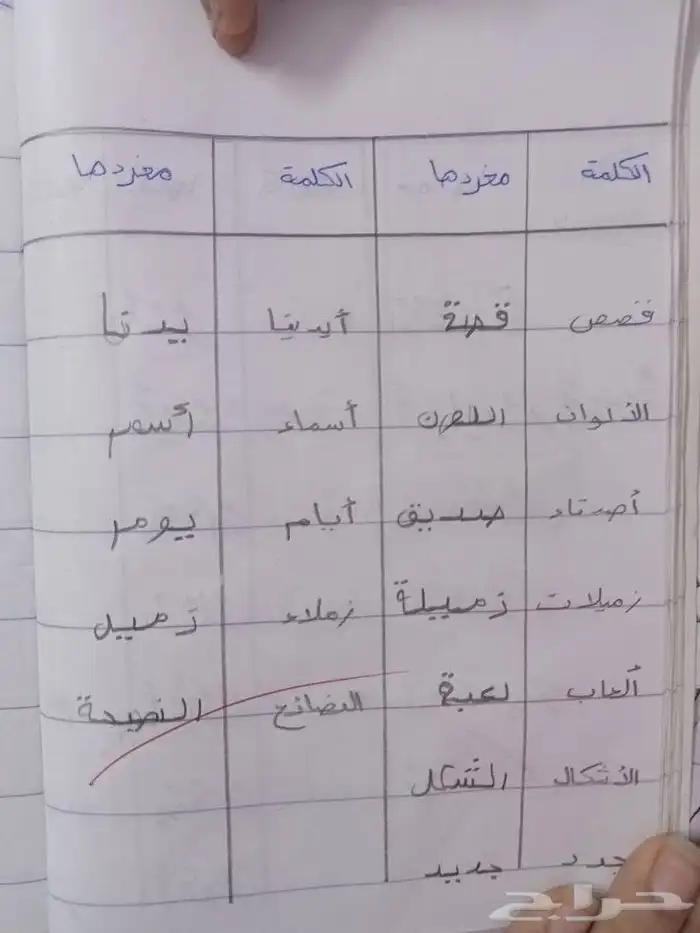 الكلمة مفردها الكلمة مفردها
قصص قصة أيدينا يدنا
الألوان اللون أسماء أسم
أصدقاء صديق أيام يوم
زميلات زميلة زملاء زميل
ألعاب لعبة النصائح النصيحة
الأشكال الشكل
جدد جديد
حراج